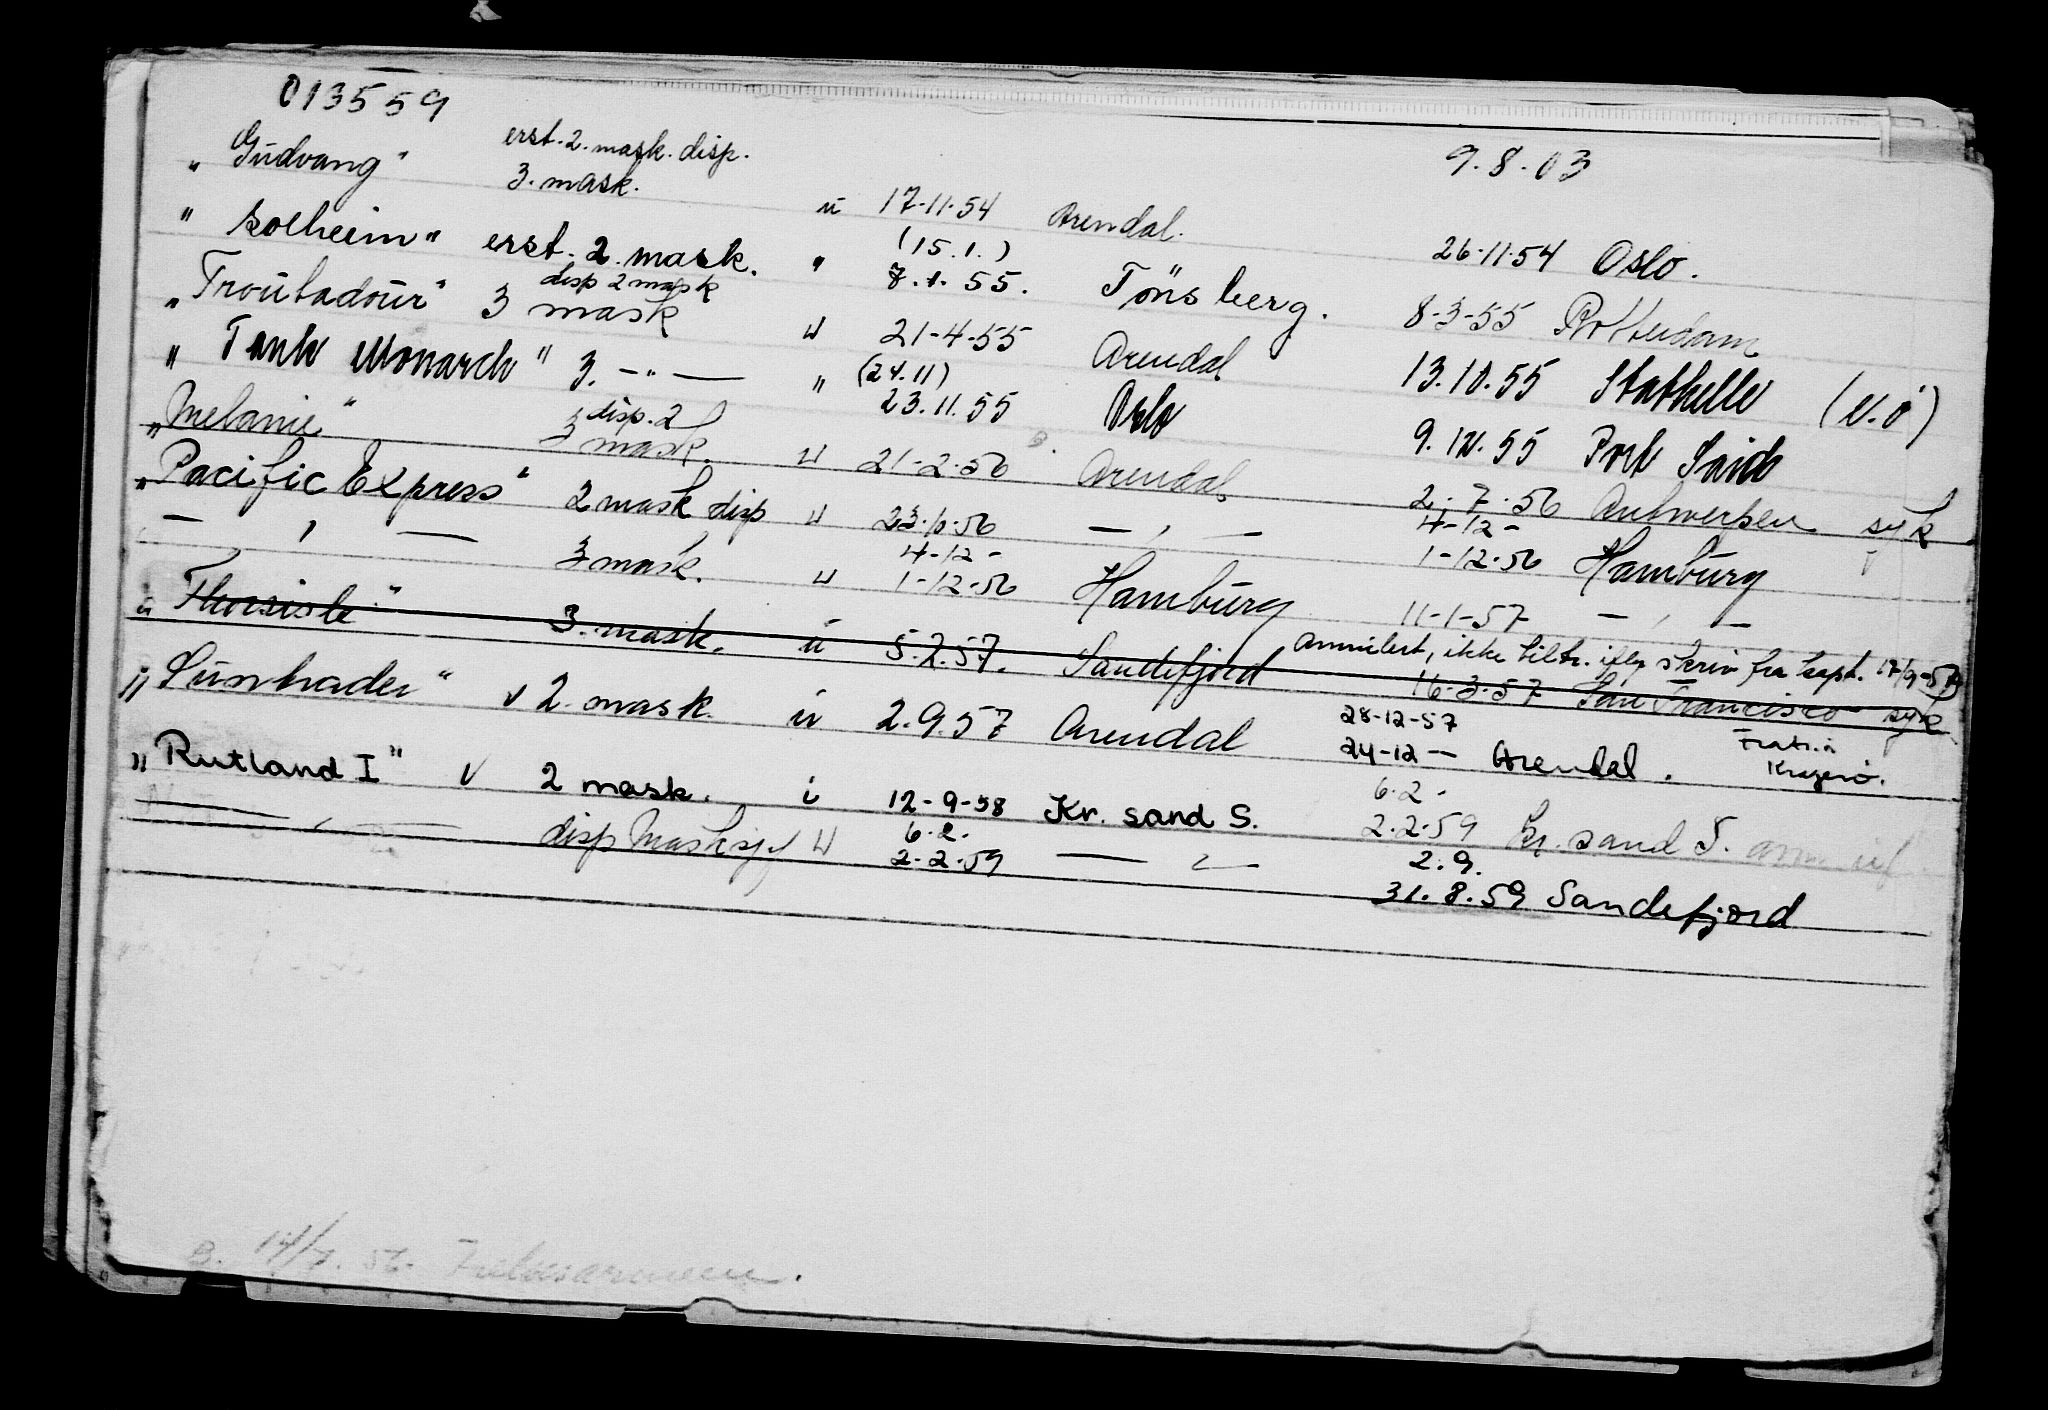 013559
9.8.03
erst. 2. mask. disp.
"Gudvang" 3. mask. u 17-11-54 Arendal. 26-11-54 Oslo.
(15.1.)
"Solheim" erst. 2. mask. " 7.1.55. Tönsberg. 8-3-55 Rotterdam
disp 2 mask
"Troubadour" 3 mask u 21-4-55 Arendal 13.10.55 Stathelle (v.ö)
(24.11)
"Tank Monarch" 3. -"- " 23.11.55 Oslo 9.12.55 Port Said
disp. 2
"Melanie" 3 mask. u 21-2-56 Arendal 2-7-56 Antwerpen syk
4-12-
"Pacific Express" 2 mask disp u 23.10.56 - " - 1-12-56 Hamburg
4-12-
- " - 3 mask. u 1-12-56 Hamburg 11-1-57 - " -
Annulert, ikke tiltr. iflg skriv fra kapt. 17/9-57
"Thorsisle" 3. mask. u 5.2.57. Sandefjord 16-3-57 San Francisco syk
28-12-57
"Suntrader" v 2. mask. u 2.9.57 Arendal 24-12- Arendal. Fratr. i Kragerö.
6.2.
"Rutland I" v 2 mask. i 12-9-58 Kr. sand S. 2.2.59 Kr. sand S.
6.2. 2.9.
- " - disp Masksjef u 2-2-59 - " - 31.8.59 Sandefjord
B. 14/7. 56.